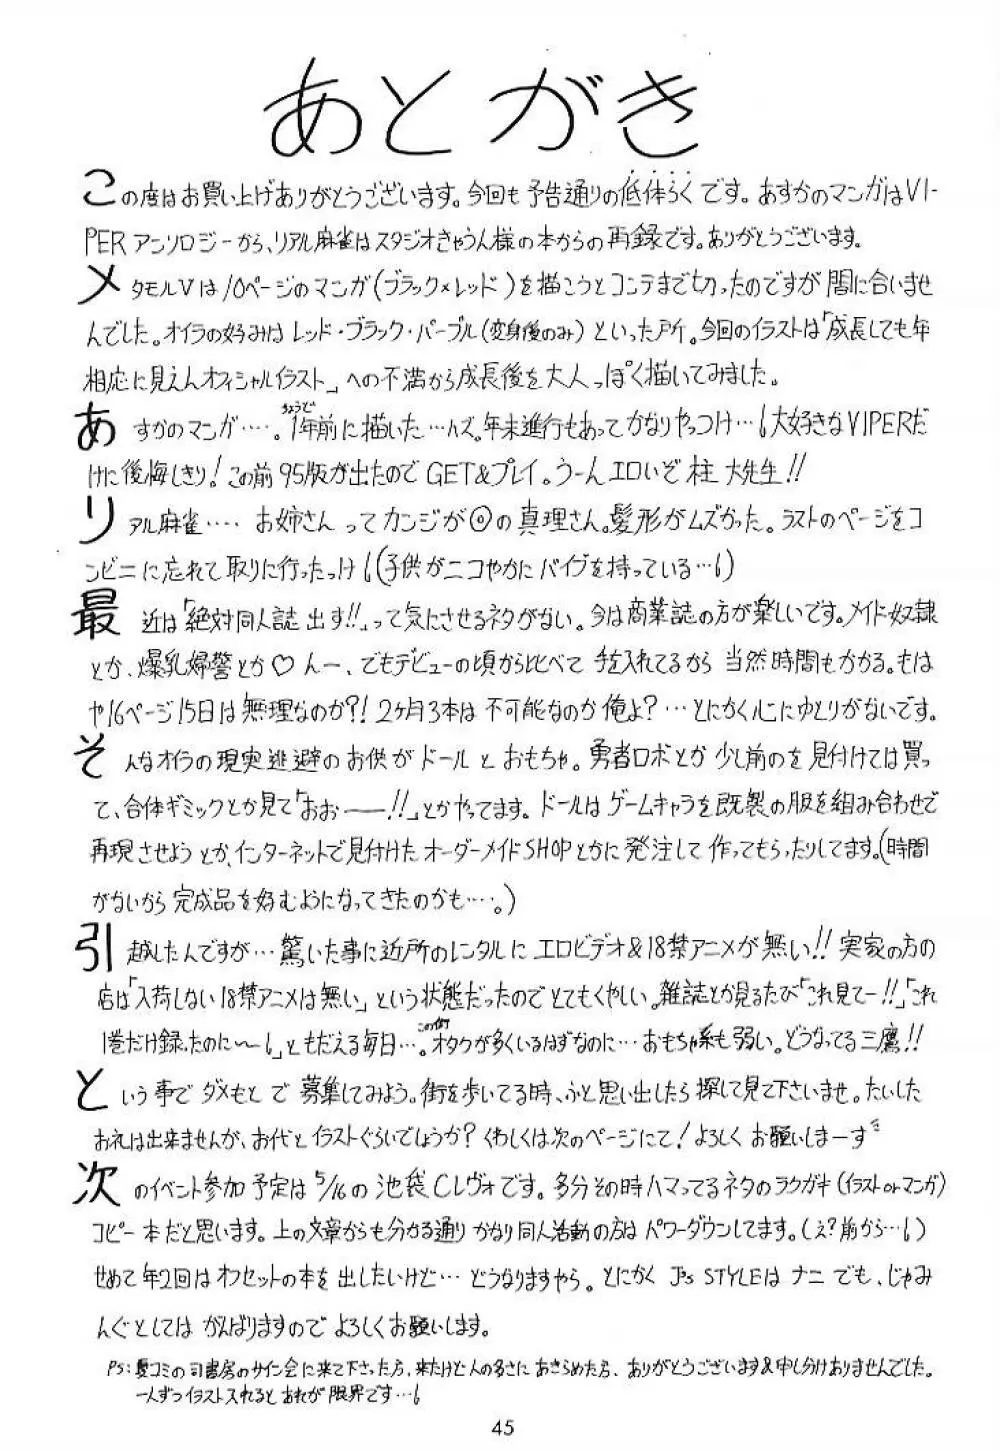 あとがき
この度はお買い上げありがとうございます。今回も予告通りの低体らくです。あすかのマンガはVI-
PERアンソロジーから、リアル麻雀はスタジオきゃうん様の本からの再録です。ありがとうございます。
メタモルVは10ページのマンガ(ブラック×レッド)を描こうとコンテまで切ったのですが間に合いませ
んでした。オイラの好みはレッド・ブラック・パープル(変身後のみ)といった所。今回のイラストは「成長しても年
相応に見えんオフィシャルイラスト」への不満から成長後を大人っぽく描いてみました。
あすかのマンガ‥‥。1年前に描いた…ハズ。年末進行もあってかなりやっつけ…大好きなVIPERだ
ちょうど
けに後悔しきり!この前95版が出たのでGET&プレイ。うーんエロいぞ柱大先生!!
リアル麻雀‥‥お姉さんってカンジが◎の真理さん。髪形がムズかった。ラストのページをコ
ンビニに忘れて取りに行ったっけ(子供がニコやかにバイブを持っている…)
最近は「絶対同人誌出す!!」って気にさせるネタがない。今は商業誌の方が楽しいです。メイド奴隷
とか、爆乳婦警とか♡んー、でもデビューの頃から比べて手を入れてるから当然時間もかかる。もは
や16ページ15日は無理なのか?!2ヶ月3本は不可能なのか俺よ?…とにかく心にゆとりがないです。
そんなオイラの現実逃避のお供がドールとおもちゃ。勇者ロボとか少し前のを見付けては買っ
て、合体ギミックとか見て「おぉ――!!」とかやってます。ドールはゲームキャラを既製の服を組み合わせで
再現させようとか、インターネットで見付けたオーダーメイドSHOPとかに発注して作ってもらったりしてます。(時間
がないから完成品を好むようになってきたのかも…。)
引越したんですが…驚いた事に近所のレンタルにエロビデオ&18禁アニメが無い!!実家の方の
店は「入荷しない18禁アニメは無い」という状態だったのでとてもくやしい。雑誌とか見るたび「これ見てー!!」「これ
1巻だけ録ったのに〜」ともだえる毎日…。オタクが多くいるはずなのに…おもちゃ系も弱い。どうなってる三鷹!!
この街
という事でダメもとで募集してみよう。街を歩いてる時、ふと思い出したら探して見て下さいませ。たいした
お礼は出来ませんが、お代とイラストぐらいでしょうか?くわしくは次のページにて!よろしくお願いしまーす
次のイベント参加予定は5/16の池袋Cレヴォです。多分その時ハマってるネタのラクガキ(イラストorマンガ)
コピー本だと思います。上の文章からも分かる通りかなり同人活動の方はパワーダウンしてます。(え?前から…)
せめて年2回はオフセットの本を出したいけど…どうなりますやら。とにかくJ's STYLEはナニでも、じゃみ
んぐとしてはがんばりますのでよろしくお願いします。
PS:夏コミの司書房のサイン会に来て下さった方、来たけど人の多さにあきらめた方、ありがとうございます&申し分けありませんでした。
一人ずつイラスト入れるとあれが限界です…
45